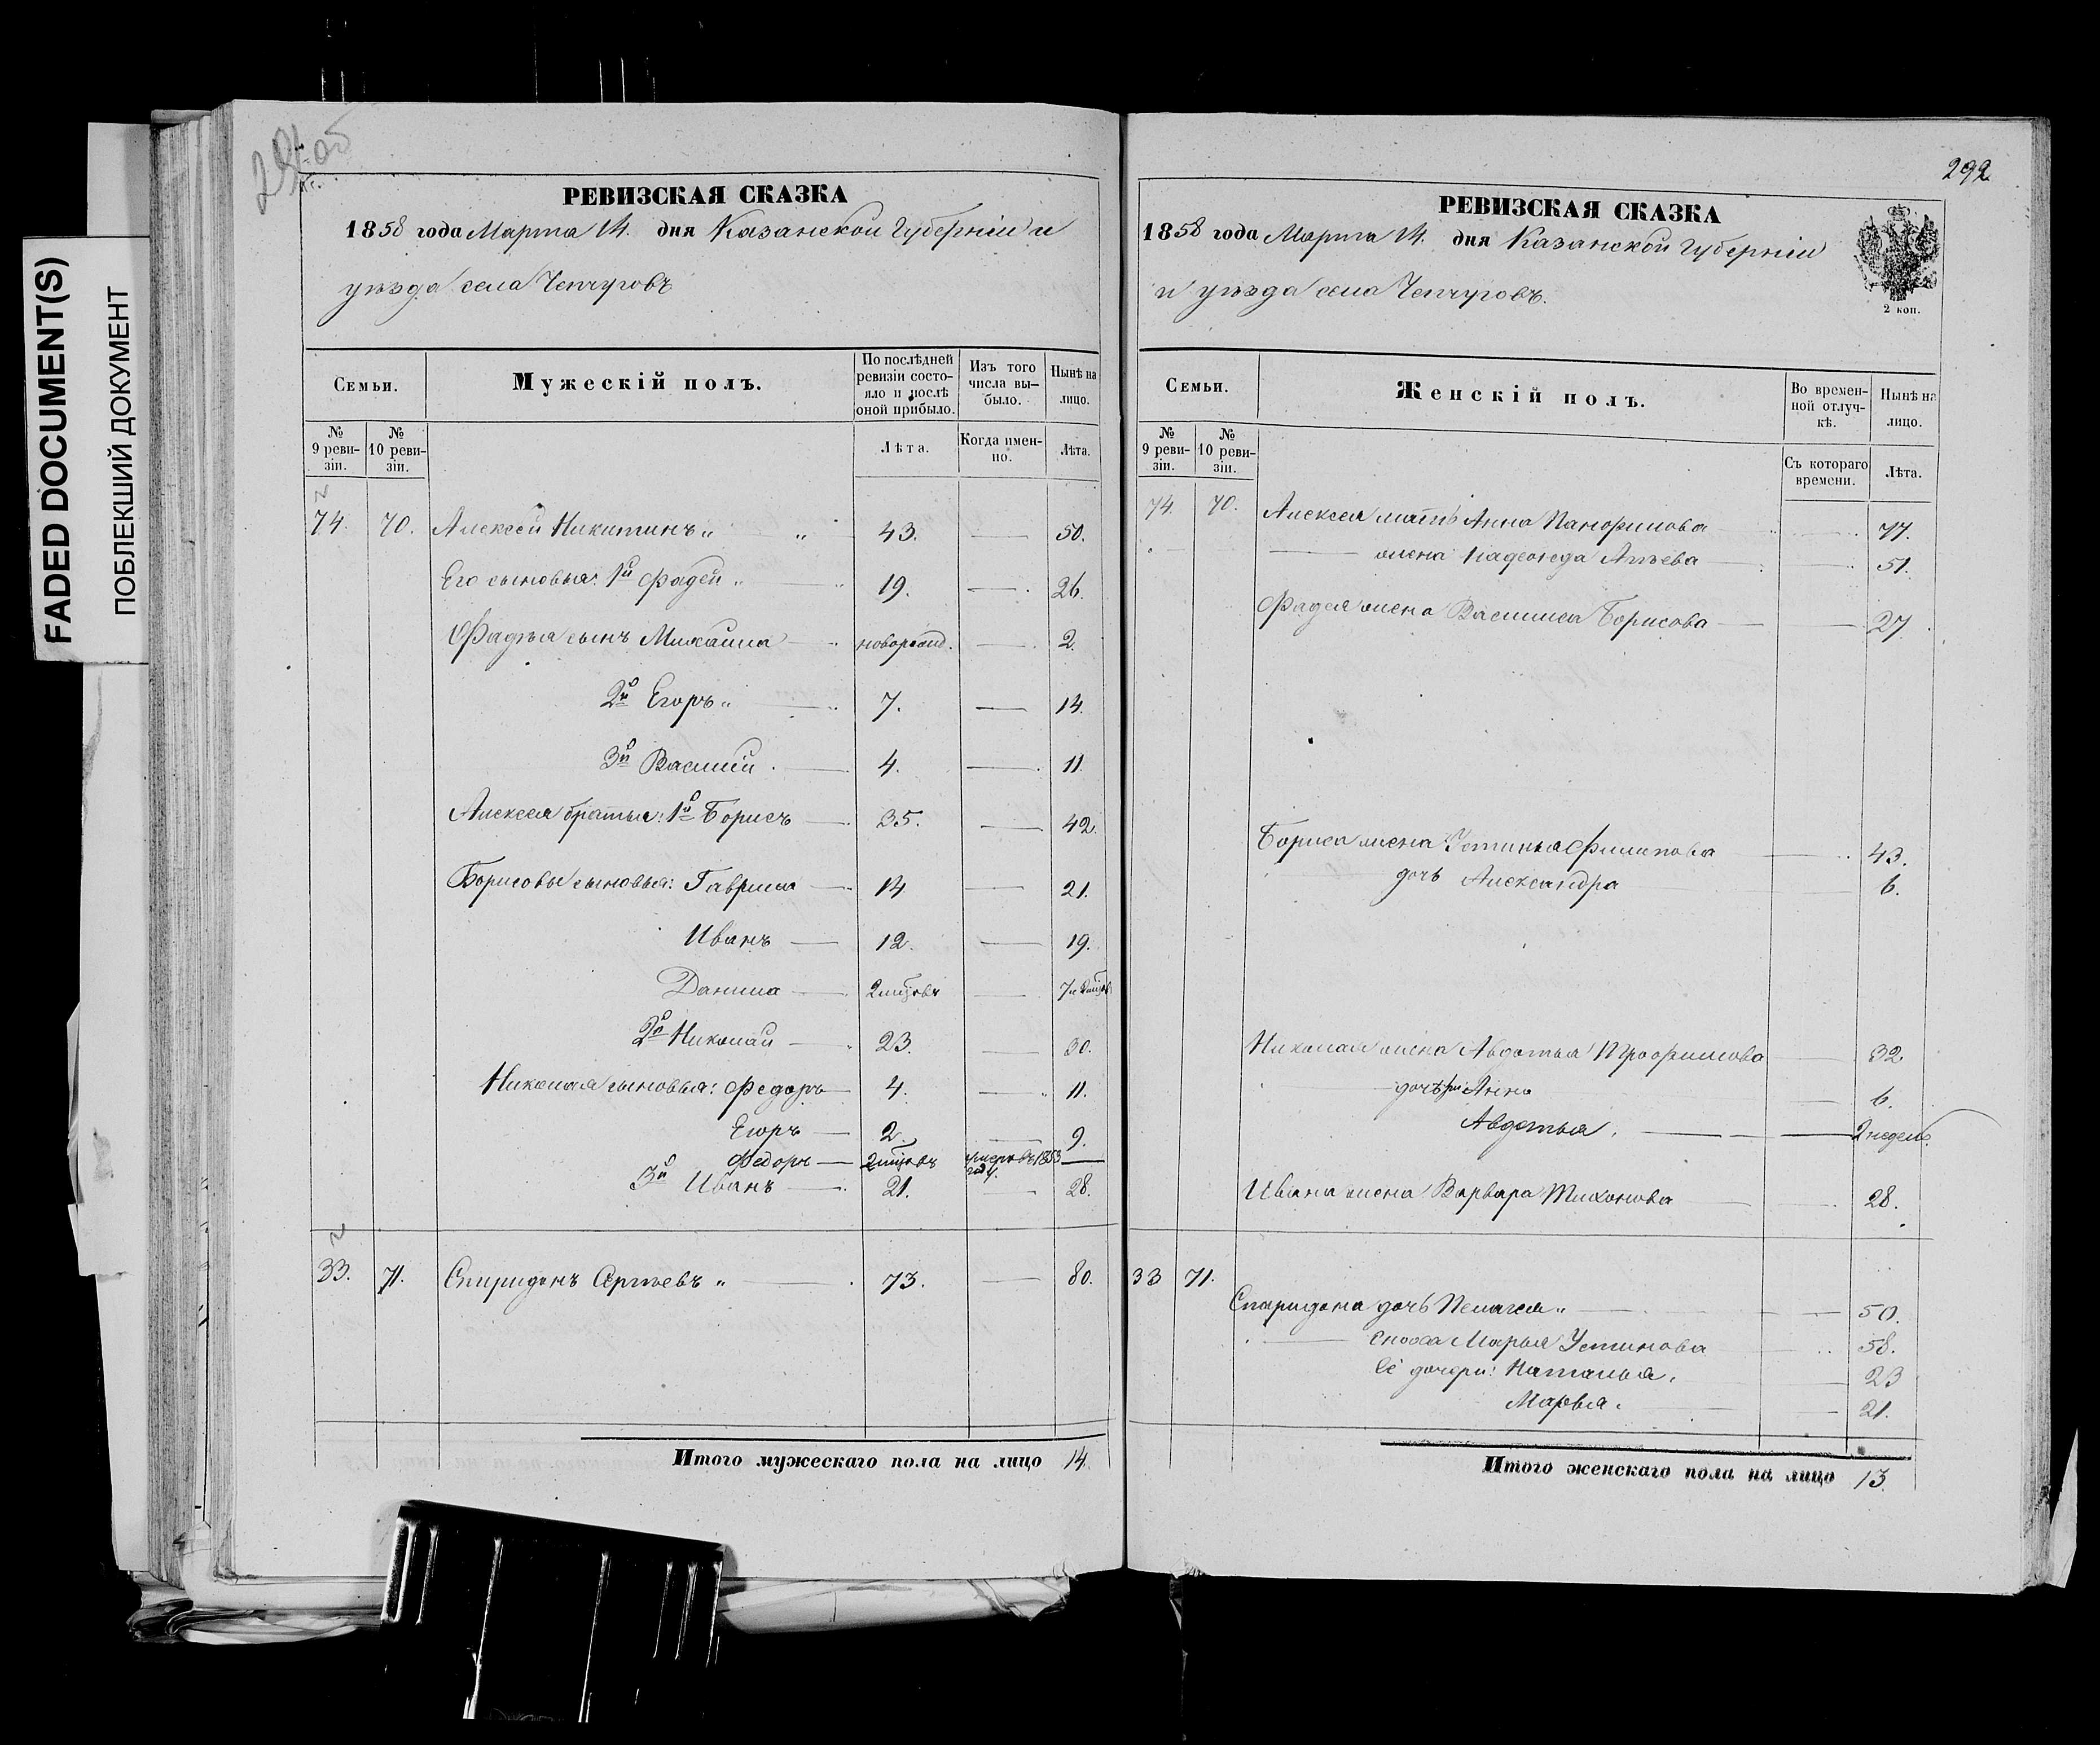 FADED DOCUMENT(S)
ПОБЛЕКШИЙ ДОКУМЕНТ
РЕВИЗСКАЯ СКАЗКА
1858 года Марта 14. дня Казанской Губерніи и
уѣзда села Чепчуговъ
Семьи.
Мужескій полъ.
По послѣдней ревизіи состояло и послѣ оной прибыло.
Изъ того числа выбыло.
Нынѣ на лицо.
№ 9 ревизіи.
№ 10 ревизіи.
Лѣта.
Когда именно.
Лѣта.
74. 70. Алексей Никитинъ „ „ 43. — 50.
Его сыновья: 1й Фадей „ — 19. — 26.
Фадѣя сынъ Михаила — новорожд. — 2.
2й Егоръ „ — 7. — 14.
3й Василий — 4. — 11
Алексея братья: 1й Борисъ — 35. — 42.
Борисовы сыновья: Гаврила — 14 — 21.
Иванъ — 12. — 19.
Данила — 2 мцовъ — 7 и 2 мцов
2й Николай — 23. — 30.
Николая сыновья: Федоръ — 4. — 11.
Егоръ — 2. — 9.
Федоръ — 2 мцовъ умеръ въ 1853 году. —
3й Иванъ — 21. — 28.
33. 71. Спиридонъ Сергѣевъ „ — 73. — 80.
Итого мужескаго пола на лицо 14.
292
РЕВИЗСКАЯ СКАЗКА
1858 года Марта 14. дня Казанской Губерніи
и уѣзда села Чепчуговъ.
2 коп.
Семьи.
Женскій полъ.
Во временной отлучкѣ.
Нынѣ на лицо.
№ 9 ревизіи.
№ 10 ревизіи.
Съ котораго времени.
Лѣта.
74. 70. Алексея мать Анна Панфилова — 77.
— жена Надежда — 51.
Фадея жена Василиса Борисова — 27
Бориса жена Устинья Филипова — 43.
дочь Александра 6.
Николая жена Авдотья — 32
дочери Анна — 6.
Авдотья. — 2 недель.
Ивана жена Варвара Тихонова — 28.
33 71.
Спиридона дочь Пелагея „ — 50.
— сноха Марья Устинова — 58.
Её дочери: Наталья. — 23
Марья. — 21.
Итого женскаго пола на лицо 13.